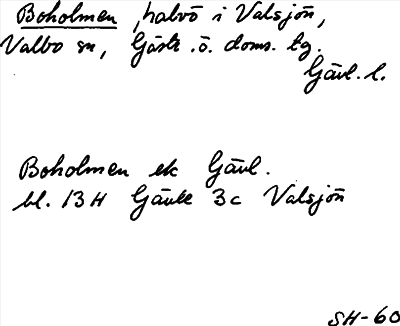 Boholmen, halvö i Valsjön,
Valbo sn, Gästr. ö. doms. tg.
Gävl. l.
Boholmen ek Gävl.
bl. 13H Gävle 3c Valsjön
SH-60